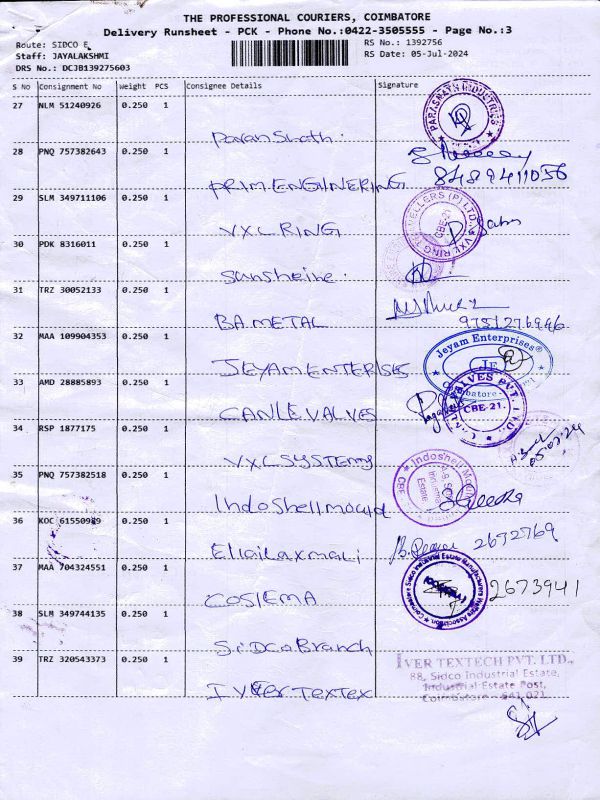 THE PROFESSIONAL COURIERS, COIMBATORE
Delivery Runsheet - PCK - Phone No.:0422-3505555 - Page No.:3
Route: SIDCO E
RS No.: 1392756
Staff: JAYALAKSHMI
RS Date: 05-Jul-2024
DRS No.: DCJB139275603
S No Consignment No Weight PCS Consignee Details Signature
27 NLM 51240926 0.250 1
PARASNATH INDUSTRIES
Paran Shath.
28 PNQ 757382643 0.250 1
8489411056
PRIM.ENGINERING
29 SLM 349711106 0.250 1
CBE-21
VXL RING
30 PDK 8316011 0.250 1
Sansheine.
31 TRZ 30052133 0.250 1
9751276946
BA.METAL
32 MAA 109904353 0.250 1
Jeyam Enterprises®
JE
JEYAM ENTERISES
33 AMD 28885893 0.250 1
VALVES PVT. LTD.
CBE-21.
CANLE VALVES
34 RSP 1877175 0.250 1
05.07.24
VXL SYSTEMS
35 PNQ 757382518 0.250 1
Indoshell Mould
Industrial
Estate
CBE
Indoshell mould
36 KOC 61550989 0.250 1
2672769
Ellailaxmali
37 MAA 704324551 0.250 1
Coimbatore Sidco Industrial Estate Manufacturers Welfare Association
2673941
COSIEMA
38 SLM 349744135 0.250 1
SiDCO Branch
39 TRZ 320543373 0.250 1
IVER TEXTECH PVT. LTD.,
88, Sidco Industrial Estate,
Industrial Estate Post,
Coimbatore - 641 021
IVer TexTex